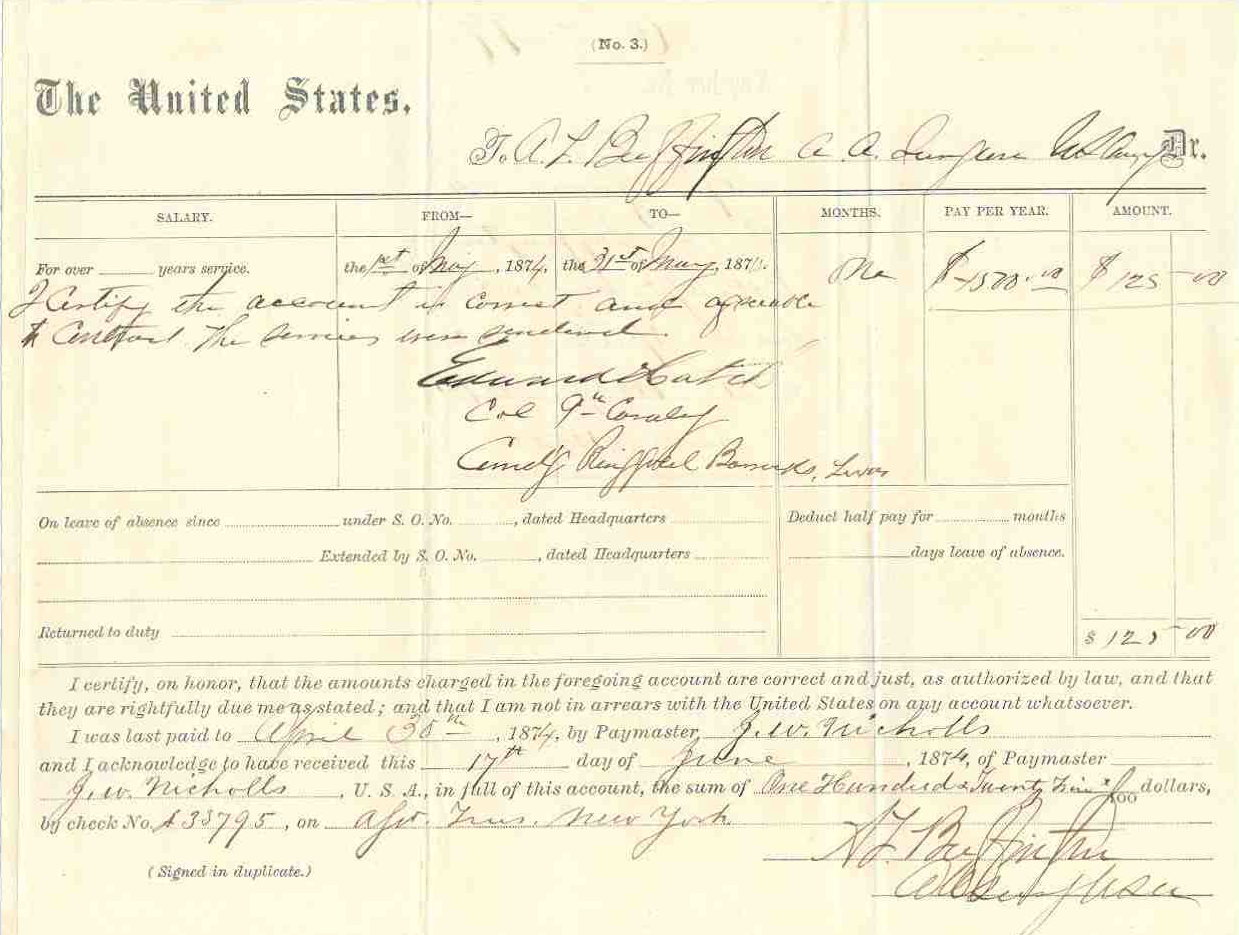 (No. 3.)
The United States.
To A. F. Buffington A. A. Surgeon U S Army Dr.
SALARY. FROM— TO— MONTHS. PAY PER YEAR. AMOUNT.
For over years service. the 1st of May, 1874, the 31st of May, 1874. One $ 1500.00 $ 125 00
I Certify the account is correct and agreeable
to Contract The services were rendered.
Edward Hatch
Col 9th Cavalry
Comdg Ringgold Barracks, Texas
On leave of absence since under S. O. No. , dated Headquarters Deduct half pay for months
Extended by S. O. No. , dated Headquarters days leave of absence.
Returned to duty
$ 125 00
I certify, on honor, that the amounts charged in the foregoing account are correct and just, as authorized by law, and that
they are rightfully due me as stated; and that I am not in arrears with the United States on any account whatsoever.
I was last paid to April 30th , 1874, by Paymaster J. W. Nicholls
and I acknowledge to have received this 17th day of June , 1874, of Paymaster
J. W. Nicholls , U. S. A., in full of this account, the sum of One Hundred & Twenty Five /100 dollars,
by check No. 33795 , on Asst. Treas. New York
A F Buffington
(Signed in duplicate.)
A A Surg USA